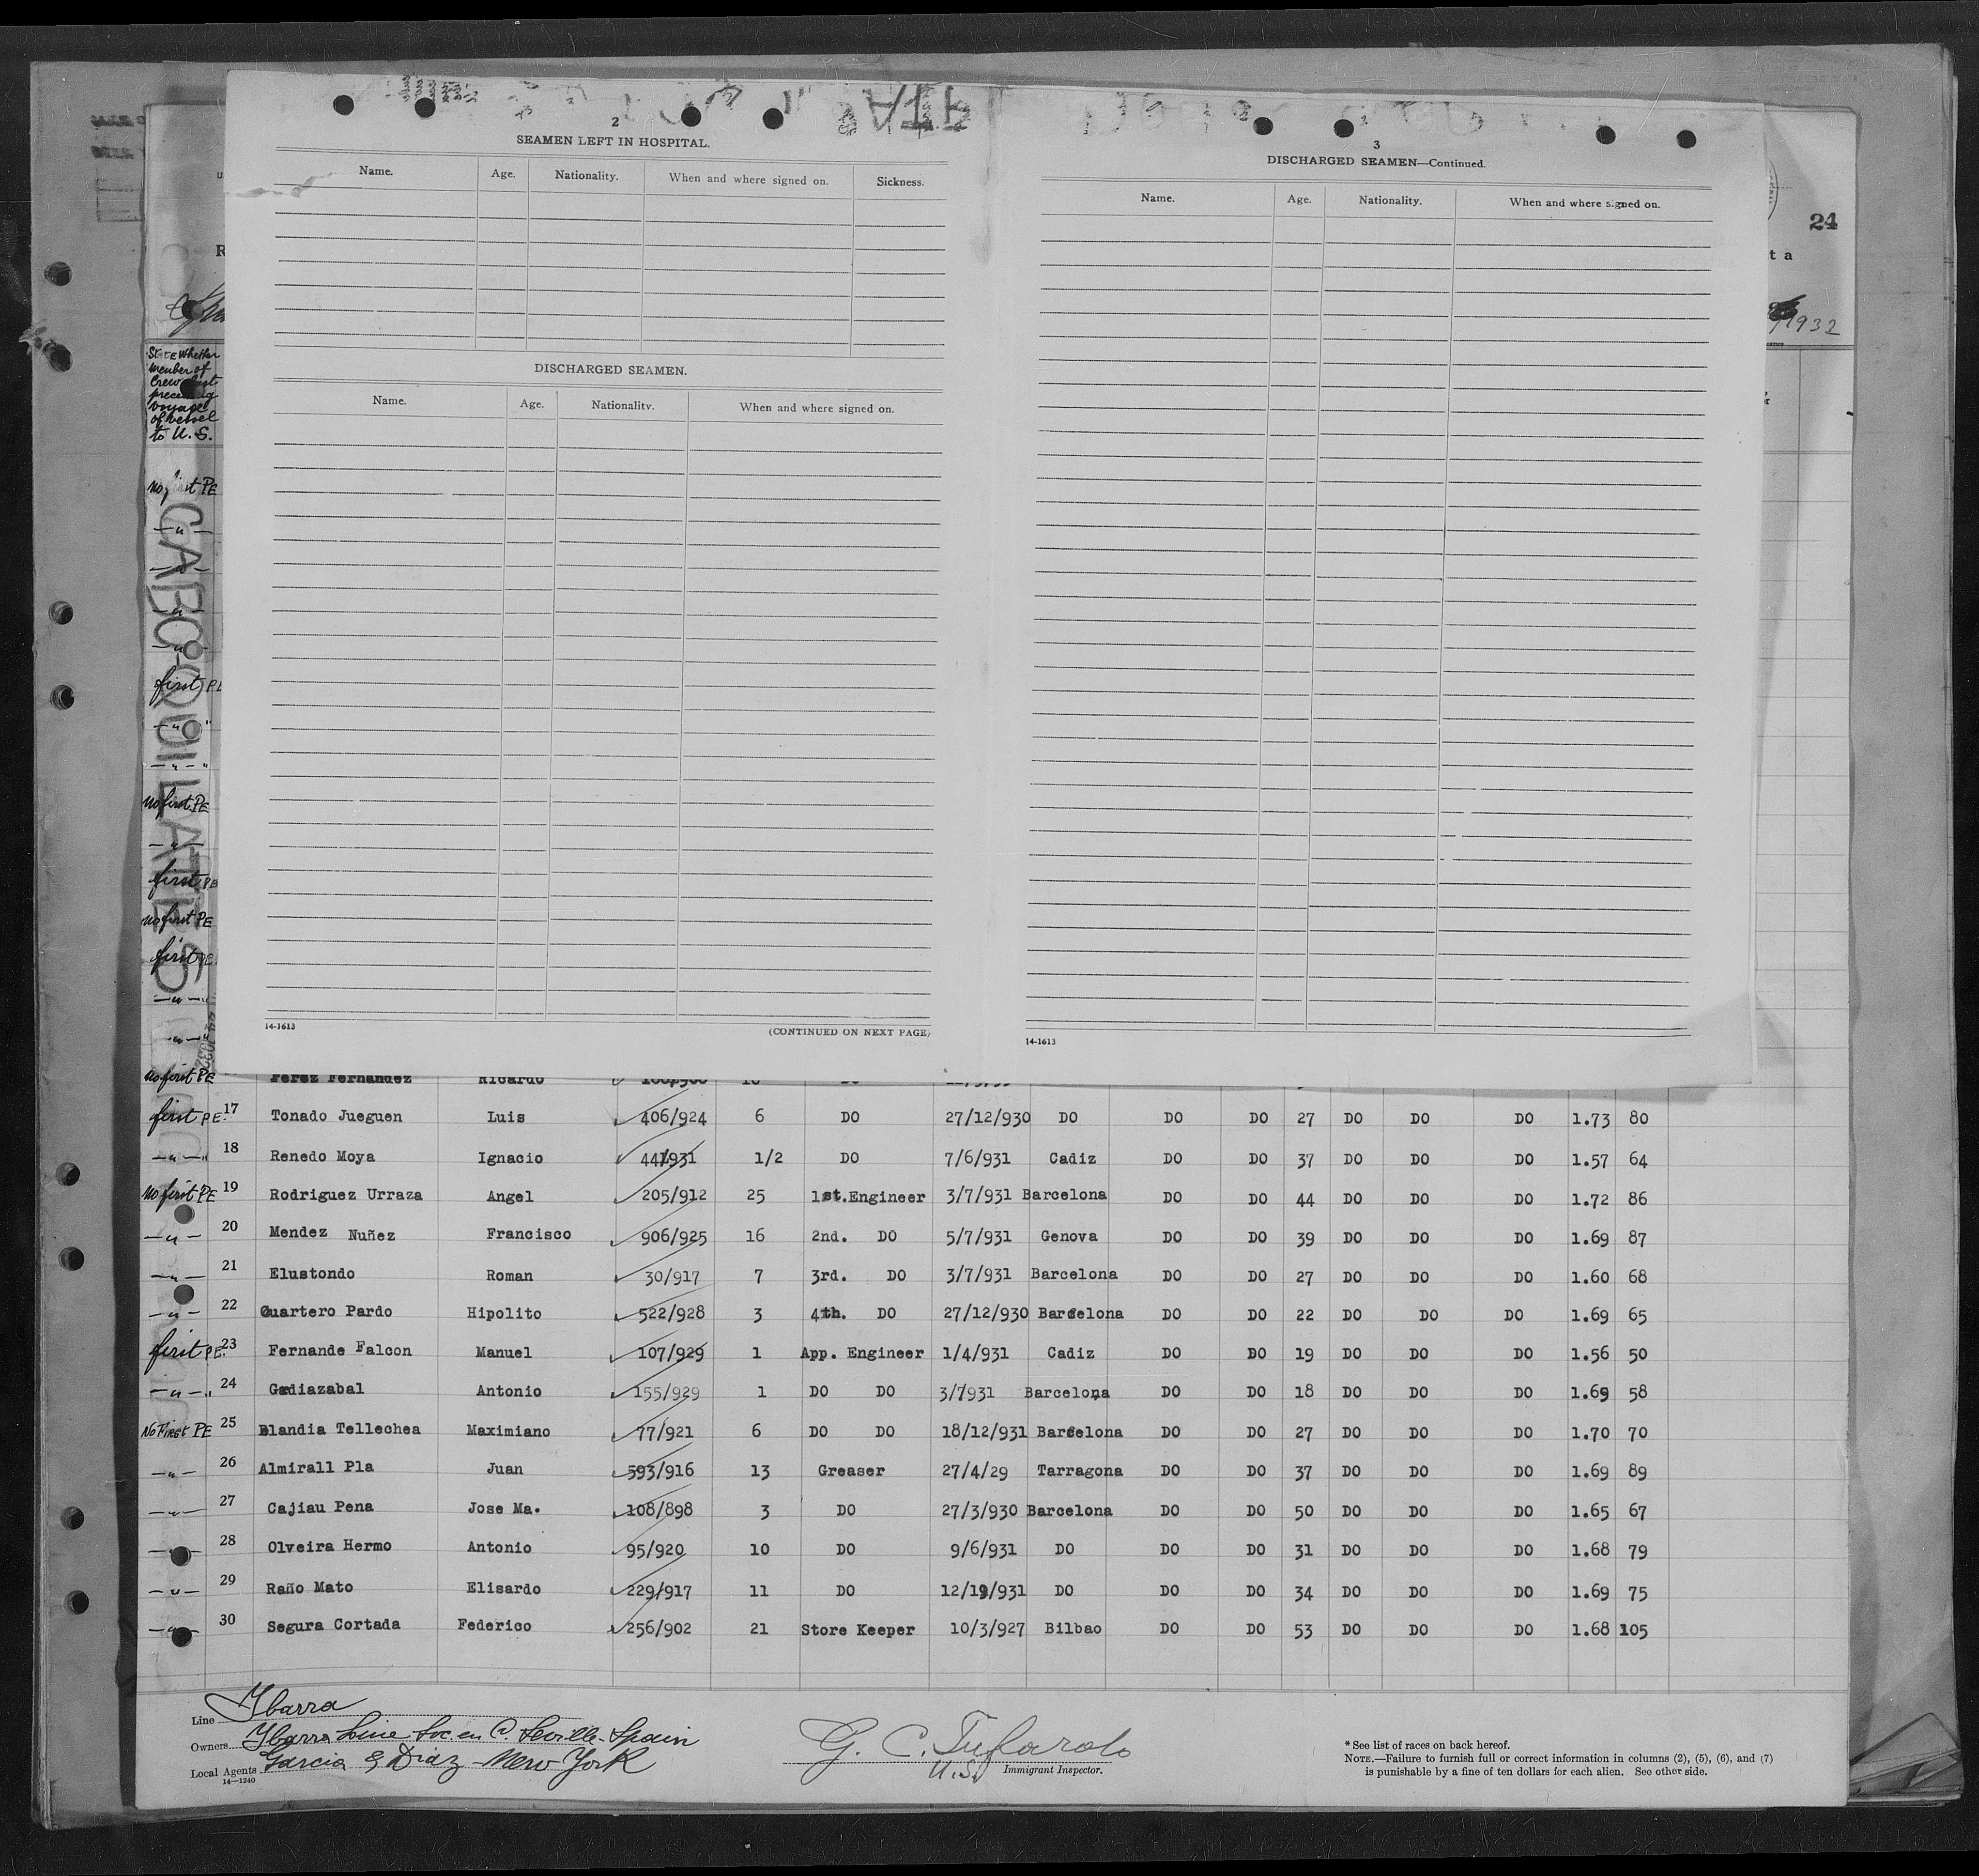 2
SEAMEN LEFT IN HOSPITAL.
Name. Age. Nationality. When and where signed on. Sickness.
DISCHARGED SEAMEN.
Name. Age. Nationality. When and where signed on.
14-1613 (CONTINUED ON NEXT PAGE)
3
DISCHARGED SEAMEN—Continued.
Name. Age. Nationality. When and where signed on.
14-1613
24
t a
1932
State Whether
member of
Crew last
preceding
voyage
of vessel
to U.S.
CABO QUILATES
No first PE
— " —
— " —
— " —
— " —
first PE
— " — "
— " — "
No first PE
— " —
first PE
No first PE
first PE
— " — "
— " — "
No first PE Perez Fernandez Ricardo DO
first PE. 17 Tonado Jueguen Luis 406/924 6 DO 27/12/930 DO DO DO 27 DO DO DO 1.73 80
— " — " 18 Renedo Moya Ignacio 441/931 1/2 DO 7/6/931 Cadiz DO DO 37 DO DO DO 1.57 64
No first PE 19 Rodriguez Urraza Angel 205/912 25 1st.Engineer 3/7/931 Barcelona DO DO 44 DO DO DO 1.72 86
— " — 20 Mendez Nuñez Francisco 906/925 16 2nd. DO 5/7/931 Genova DO DO 39 DO DO DO 1.69 87
— " — 21 Elustondo Roman 30/917 7 3rd. DO 3/7/931 Barcelona DO DO 27 DO DO DO 1.60 68
— " — 22 Cuartero Pardo Hipolito 522/928 3 4th. DO 27/12/930 Barcelona DO DO 22 DO DO DO 1.69 65
first PE. 23 Fernande Falcon Manuel 107/929 1 App. Engineer 1/4/931 Cadiz DO DO 19 DO DO DO 1.56 50
— " — " 24 Gadiazabal Antonio 155/929 1 DO DO 3/7931 Barcelona DO DO 18 DO DO DO 1.69 58
No First PE 25 Elandia Tellechea Maximiano 77/921 6 DO DO 18/12/931 Barcelona DO DO 27 DO DO DO 1.70 70
— " — 26 Almirall Pla Juan 593/916 13 Greaser 27/4/29 Tarragona DO DO 37 DO DO DO 1.69 89
— " — 27 Cajiau Pena Jose Ma. 108/898 3 DO 27/3/930 Barcelona DO DO 50 DO DO DO 1.65 67
— " — 28 Olveira Hermo Antonio 95/920 10 DO 9/6/931 DO DO DO 31 DO DO DO 1.68 79
— " — 29 Raño Mato Elisardo 229/917 11 DO 12/12/931 DO DO DO 34 DO DO DO 1.69 75
— " — 30 Segura Cortada Federico 256/902 21 Store Keeper 10/3/927 Bilbao DO DO 53 DO DO DO 1.68 105
Line Ybarra
Owners Ybarra Line Soc. en C. Seville-Spain
Local Agents Garcia & Diaz - New York
14—1240
G. C. Tufarolo
U.S. Immigrant Inspector.
* See list of races on back hereof.
NOTE.—Failure to furnish full or correct information in columns (2), (5), (6), and (7)
is punishable by a fine of ten dollars for each alien. See other side.